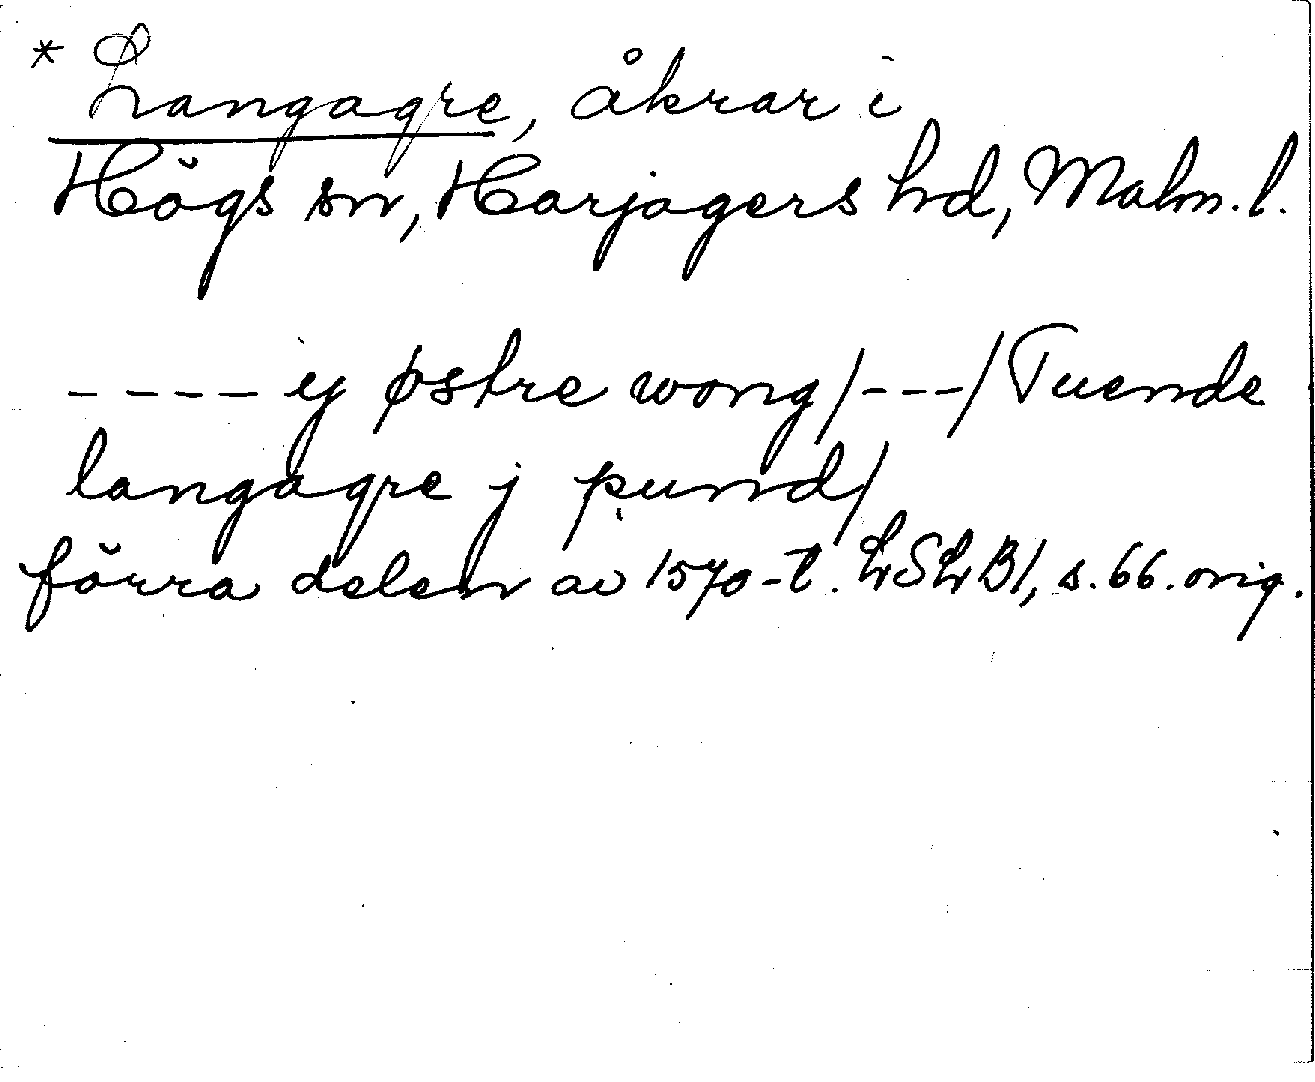 * Langagre, åkrar i
Högs sn, Harjagers hd, Malm. l.
---- ij østre wong/---/Tuende
langagre j pund/
förra delen av 1570-t. LSLB1, s. 66. orig.